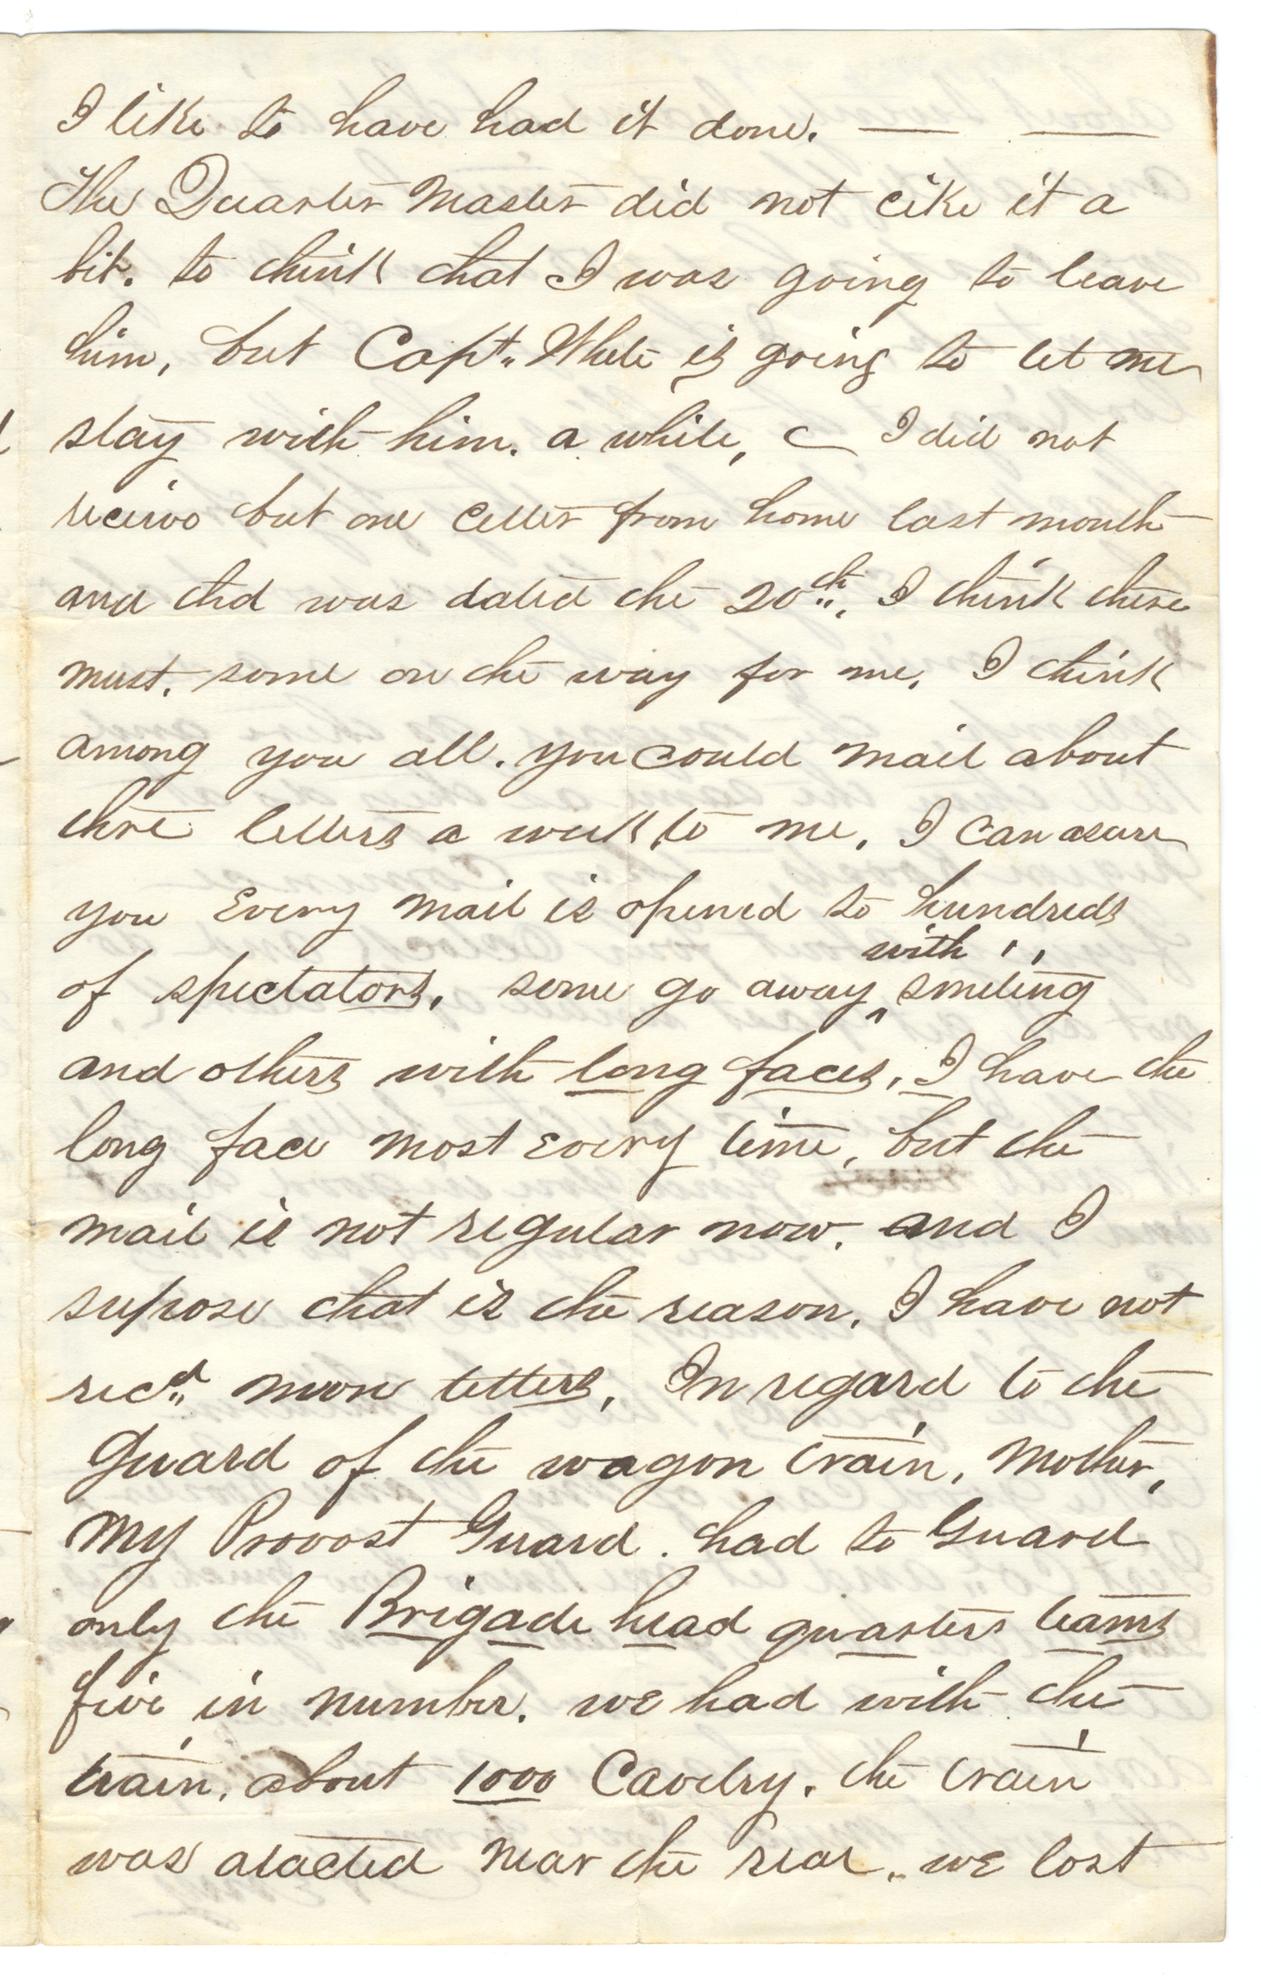 I like to have had it done. — —
The Quarter Master did not like it a
bit. to think that I was going to leave
him, but Capt. White is going to let me
stay with him. a while, — I did not
recieve but one letter from home last month
and that was dated the 20th. I think there
must. some on the way for me. I think
among you all. you could mail about
three letters a week to me. I can asure
you Every mail is opened to hundreds
of spectators. some go away with smiling
and others with long faces, I have the
long face most Every time, but the
mail is not regular now. and I
supose that is the reason. I have not
recd. more letters. In regard to the
Guard of the wagon train, Mother,
My Provost Guard. had to Guard
only the Brigade head quarters teams
five in number. we had with the
train, about 1000 Cavelry. the train
was atacted near the rear. we lost